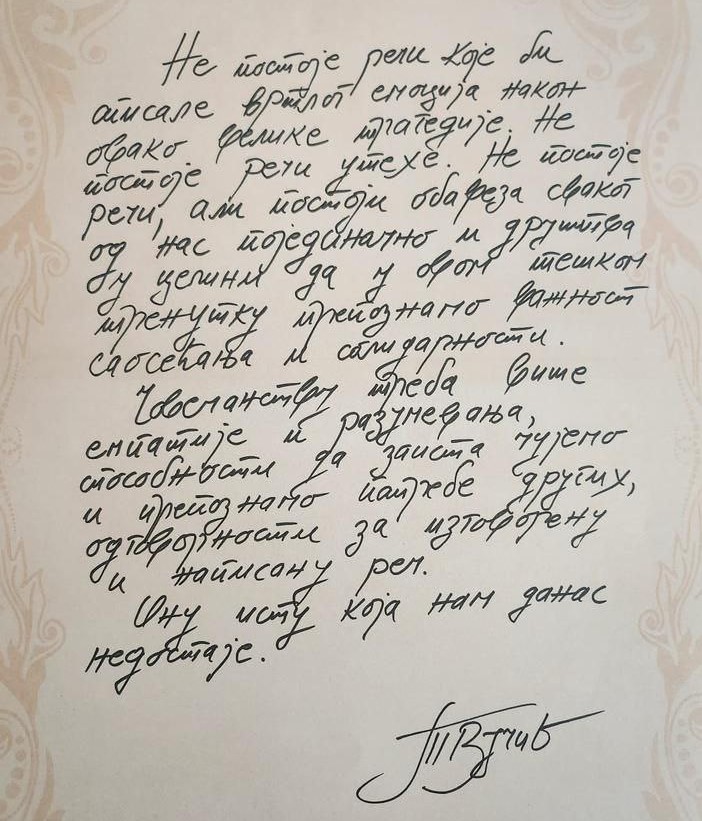 Не постоје речи које би
описале вртлог емоција након
овако велике трагедије. Не
постоје речи утехе. Не постоје
речи, али постоји обавеза сваког
од нас појединачно и друштва
у целини да у овом тешком
тренутку препознамо важност
саосећања и солидарности.
Човечанству треба више
емпатије и разумевања,
способности да заиста чујемо
и препознамо потребе других,
одговорности за изговорену
и написану реч.
Ону исту која нам данас
недостаје.
ТВучић